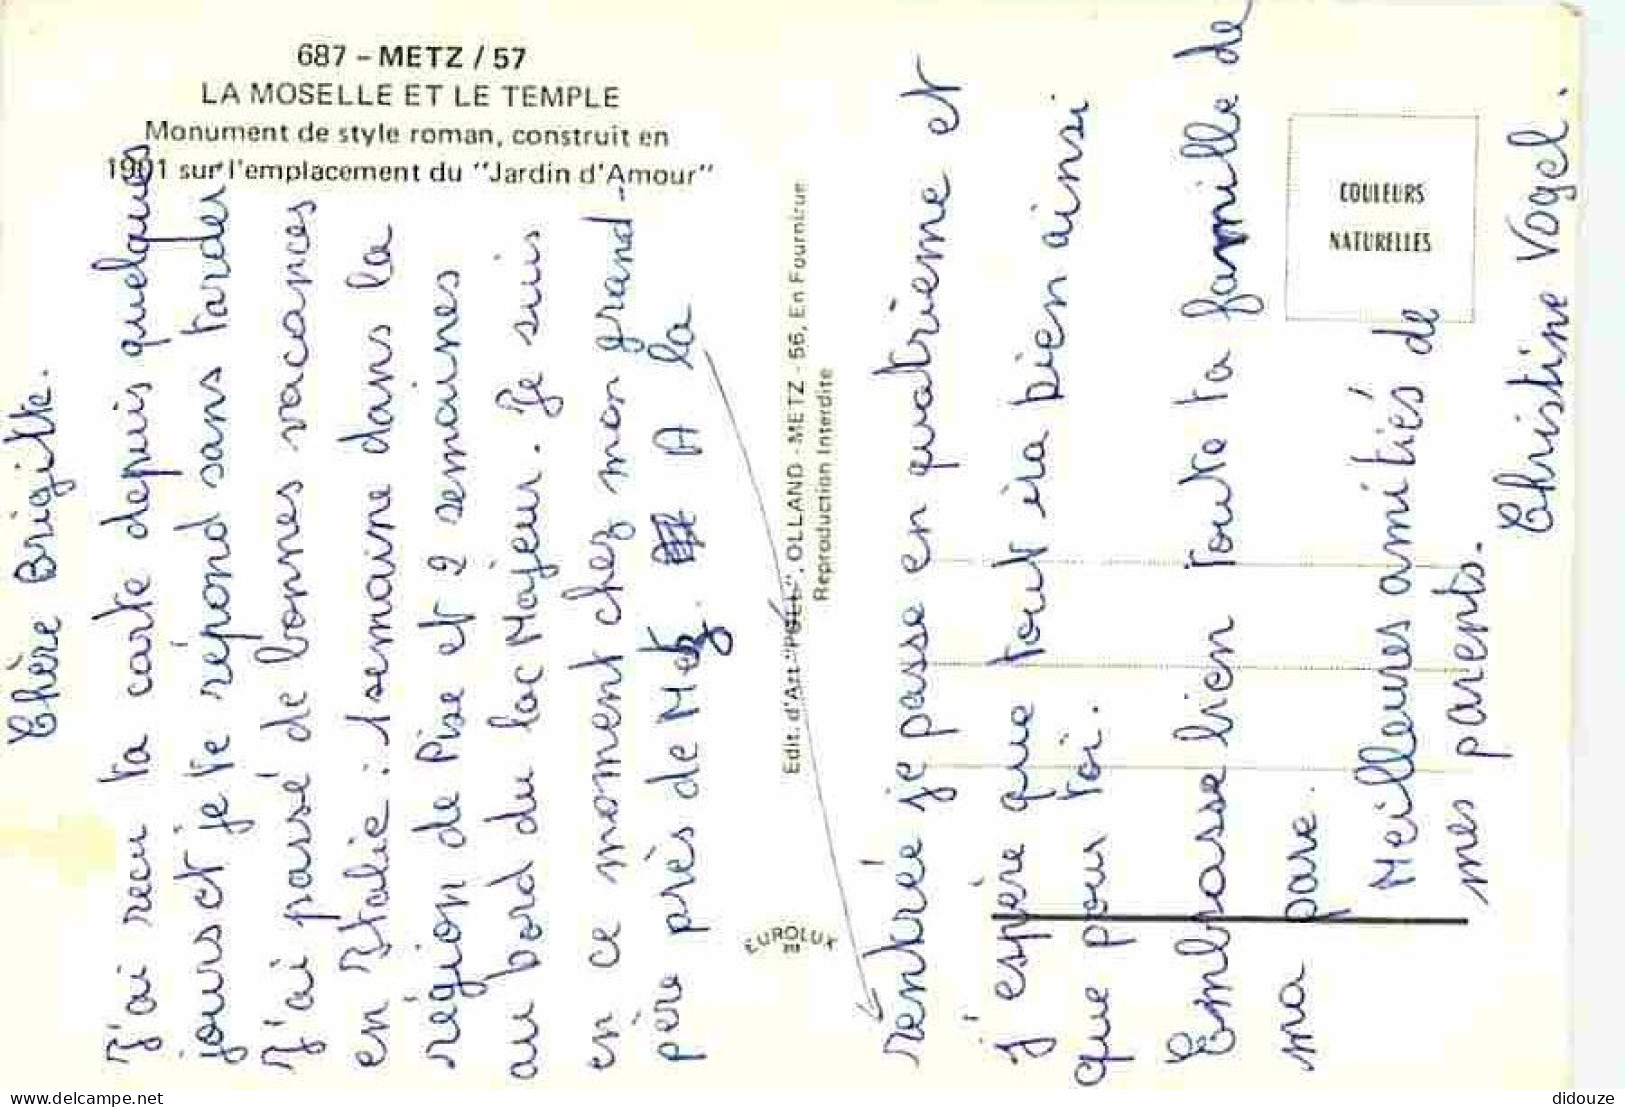 687 - METZ / 57
LA MOSELLE ET LE TEMPLE
Monument de style roman, construit en
1901 sur l'emplacement du "Jardin d'Amour"
Chère Brigitte.
J'ai reçu ta carte depuis quelques
jours et je te répond sans tarder
J'ai passé de bonnes vacances
en Italie : 1 semaine dans la
région de Pise et 2 semaines
au bord du lac Majeur. Je suis
en ce moment chez mon grand-
père près de Metz. A la
Edit. d'Art "PULL", OLLAND - METZ - 56, En Fournirue
Reproduction Interdite
EUROLUX
rentrée je passe en quatrième et
j'espère que tout ira bien ainsi
que pour toi.
Embrasse bien toute ta famille de
ma part.
Meilleures amitiés de
mes parents.
Christine Vogel.
COULEURS
NATURELLES
delcampe.net
didouze